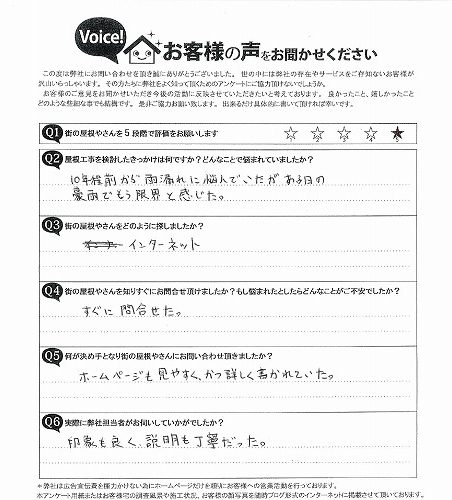 Voice! お客様の声をお聞かせください
この度は弊社にお問い合わせを頂き誠にありがとうございました。 世の中には弊社の存在やサービスをご存知ないお客様が
沢山いらっしゃいます。その方たちに弊社をよく知って頂くためのアンケートにご協力頂けないでしょうか。
お客様のご意見をお聞かせいただき今後の活動に反映させていただきたいと考えております。良かったこと、嬉しかったこと
どのような些細な事でも結構です。 是非ご協力お願い致します。 出来るだけ具体的に書いて頂ければ幸いです。
Q1 街の屋根やさんを5段階で評価をお願いします ☆ ☆ ☆ ☆ ★
Q2 屋根工事を検討したきっかけは何ですか?どんなことで悩まれていましたか?
10年程前から雨漏れに悩んでいたがある日の
豪雨でもう限界と感じた。
Q3 街の屋根やさんをどのように探しましたか?
インターネット
Q4 街の屋根やさんを知りすぐにお問合せ頂けましたか?もし悩まれたとしたらどんなことがご不安でしたか?
すぐに問合せた。
Q5 何が決め手となり街の屋根やさんにお問い合わせ頂きましたか?
ホームページも見やすく、かつ詳しく書かれていた。
Q6 実際に弊社担当者がお伺いしていかがでしたか?
印象も良く、説明も丁寧だった。
*弊社は広告宣伝費を極力かけない為にホームページだけを頼りにお客様への営業活動を行っております。
*アンケート用紙またはお客様宅の調査風景や施工状況、お客様の顔写真を随時ブログ形式のインターネットに掲載させて頂いております。